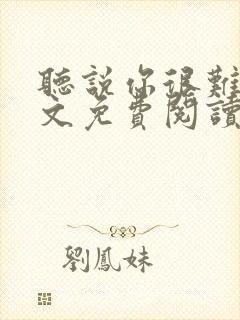 聽說你很難
文免費閱讀
劉鳳妹